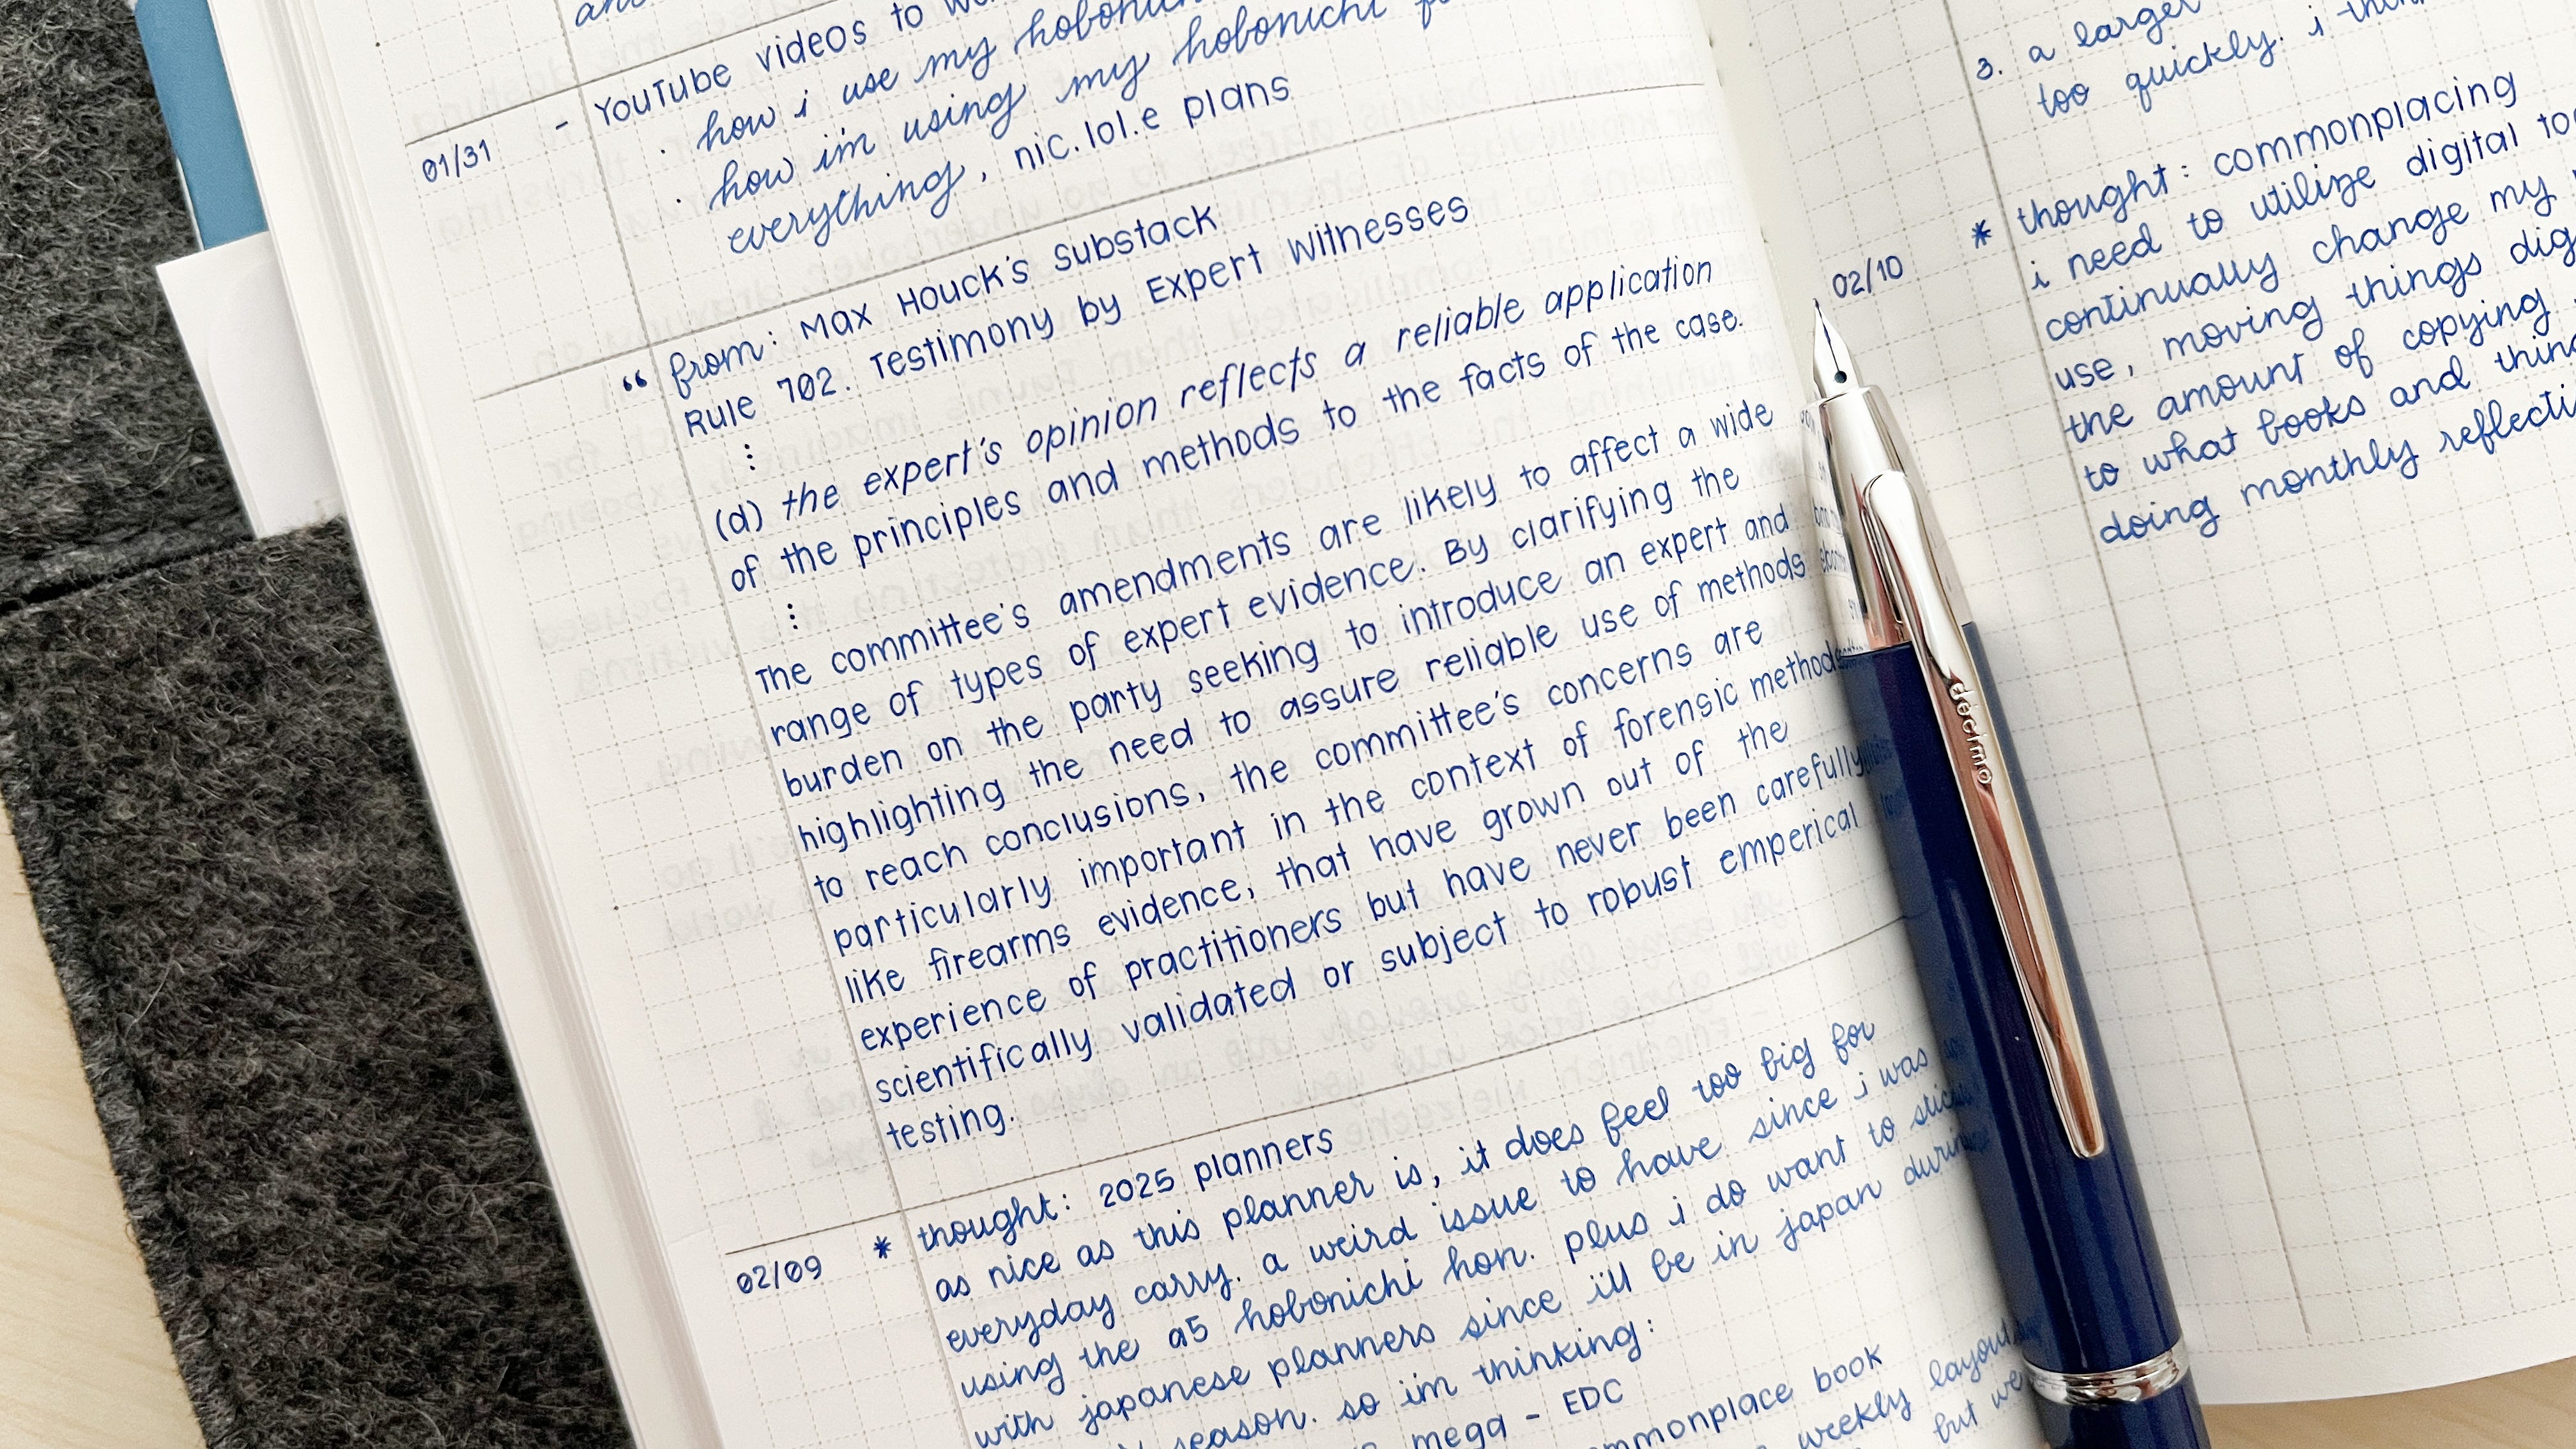 YouTube videos to
01/31 - how i use my
· how im using my hobonichi
everything, nic.lol.e plans
“ from: Max Houck's Substack
Rule 702. Testimony by Expert Witnesses
⋮
(d) the expert's opinion reflects a reliable application
of the principles and methods to the facts of the case.
⋮
The committee's amendments are likely to affect a wide
range of types of expert evidence. By clarifying the
burden on the party seeking to introduce an expert and
highlighting the need to assure reliable use of methods
to reach conclusions, the committee's concerns are
particularly important in the context of forensic methods
like firearms evidence, that have grown out of the
experience of practitioners but have never been carefully
scientifically validated or subject to robust emperical
testing.
02/09 * thought: 2025 planners
as nice as this planner is, it does feel too big for
everyday carry. a weird issue to have since i was
using the a5 hobonichi hon. plus i do want to
with japanese planners since i'll be in japan during
season. so im thinking:
mega - EDC
commonplace book
weekly
but
3. a larger
too quickly. i
02/10 * thought: commonplacing
i need to utilize digital
continually change my
use, moving things
the amount of copying
to what books and
doing monthly
decimo